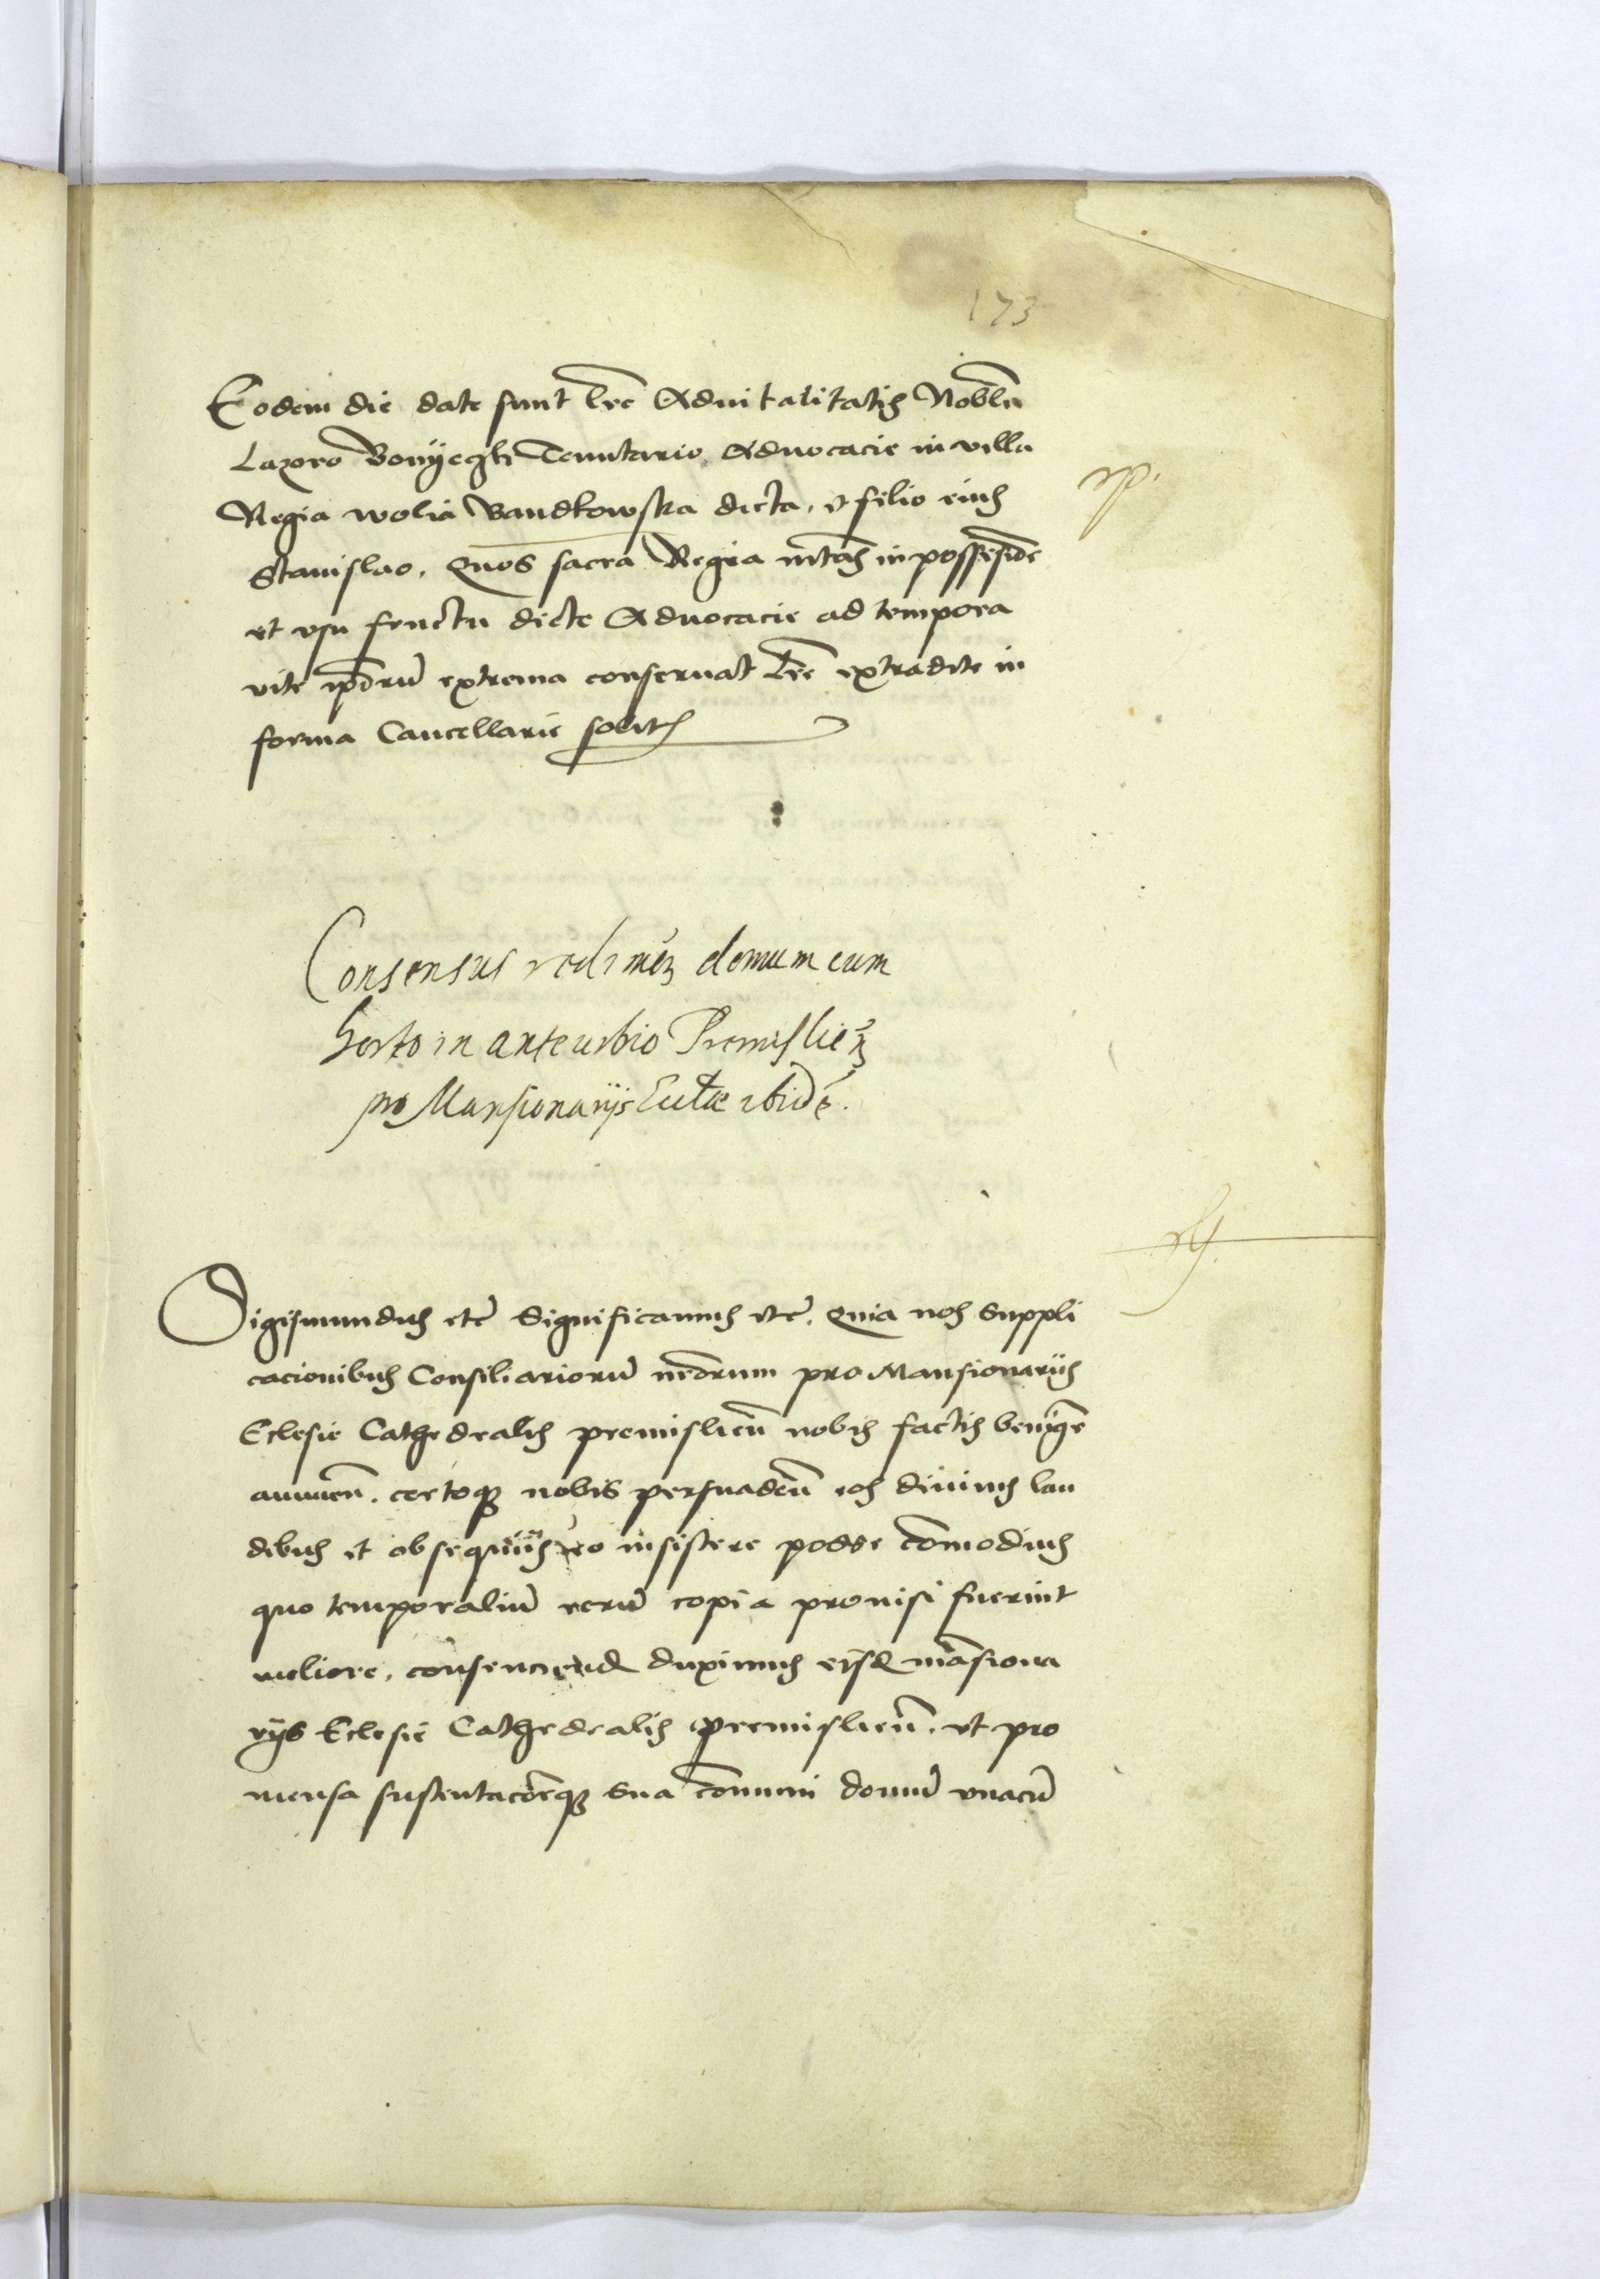 173
Eodem die date sunt lre Advitalitatis Nobili
Lazoro Bonyeczki Tenutario Aduocacie in villa
Regia wolia Bandkowska dicta, et filio eius
Stanislao. Quos sacra Regia mtas in possessione
et vsu fructu dicte Aduocacie ad tempora
vite ipsoru extrema conseruat lre extradite in
forma Cancellarie solit
Consensus redimen domum cum
horto in anteurbio Premislien
pro Mansionarijs Eccliae ibide.
Sigismundus etc Significamus etc. Quia nos suppli
cacionibus Consiliarioru nrorum pro Mansionariis
Eclesie Cathedralis premislien nobis factis benigne
annuen. certoq nobis persuaden eos diuinis lau
dibus et obsequiis eo insistere posse comodius
quo temporaliu reru copia prouisi fuerint
meliore, consenciend duximus eisd mansiona
rijs Eclesie Cathedralis premislien. vt pro
mensa sustentacioneq sua comuni domu vnacu